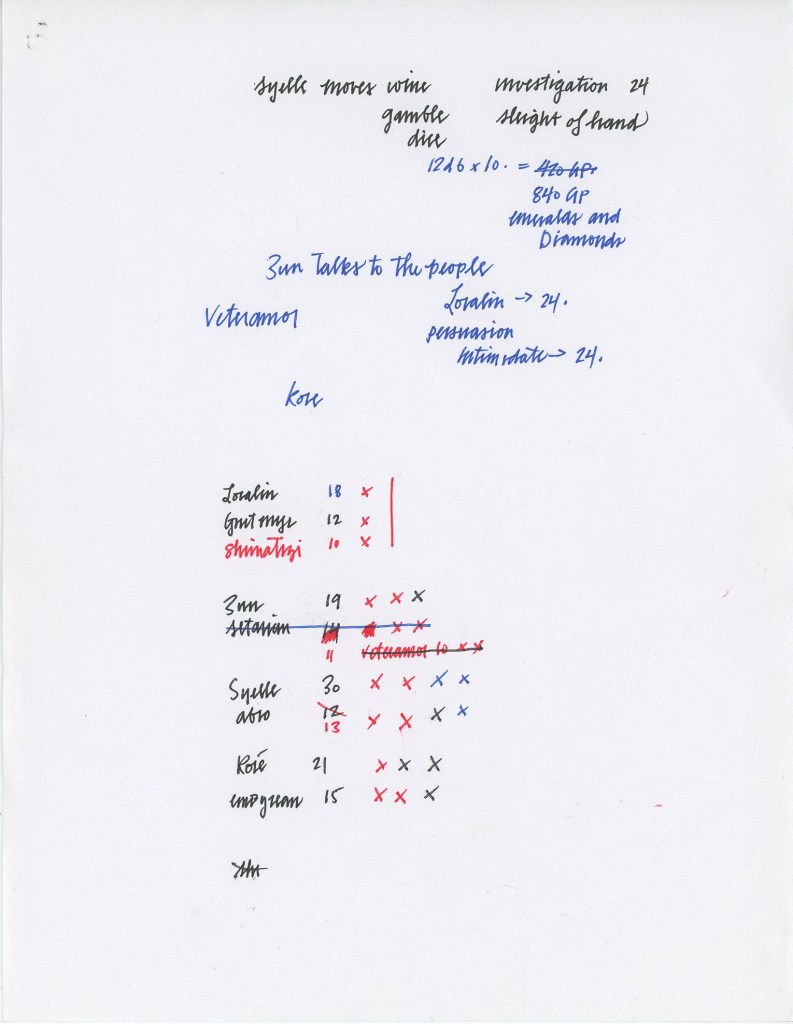 syelle moves wine investigation 24
gamble sleight of hand
dice
12d6 x 10. = 420 GP.
840 GP
emeralds and
Diamonds
Zun Talks to the people
Loralin -> 24.
Veteramos
persuasion
intimidate -> 24.
Kose
Loralin 18 x
12 x
Shimatizi 10 x
Zun 19 x x x
setarian 14 x x
11 Veteramos 10 x x
Syelle 30 x x x x
abro 12 x x x x
13
Rosé 21 x x x
empyrean 15 x x x